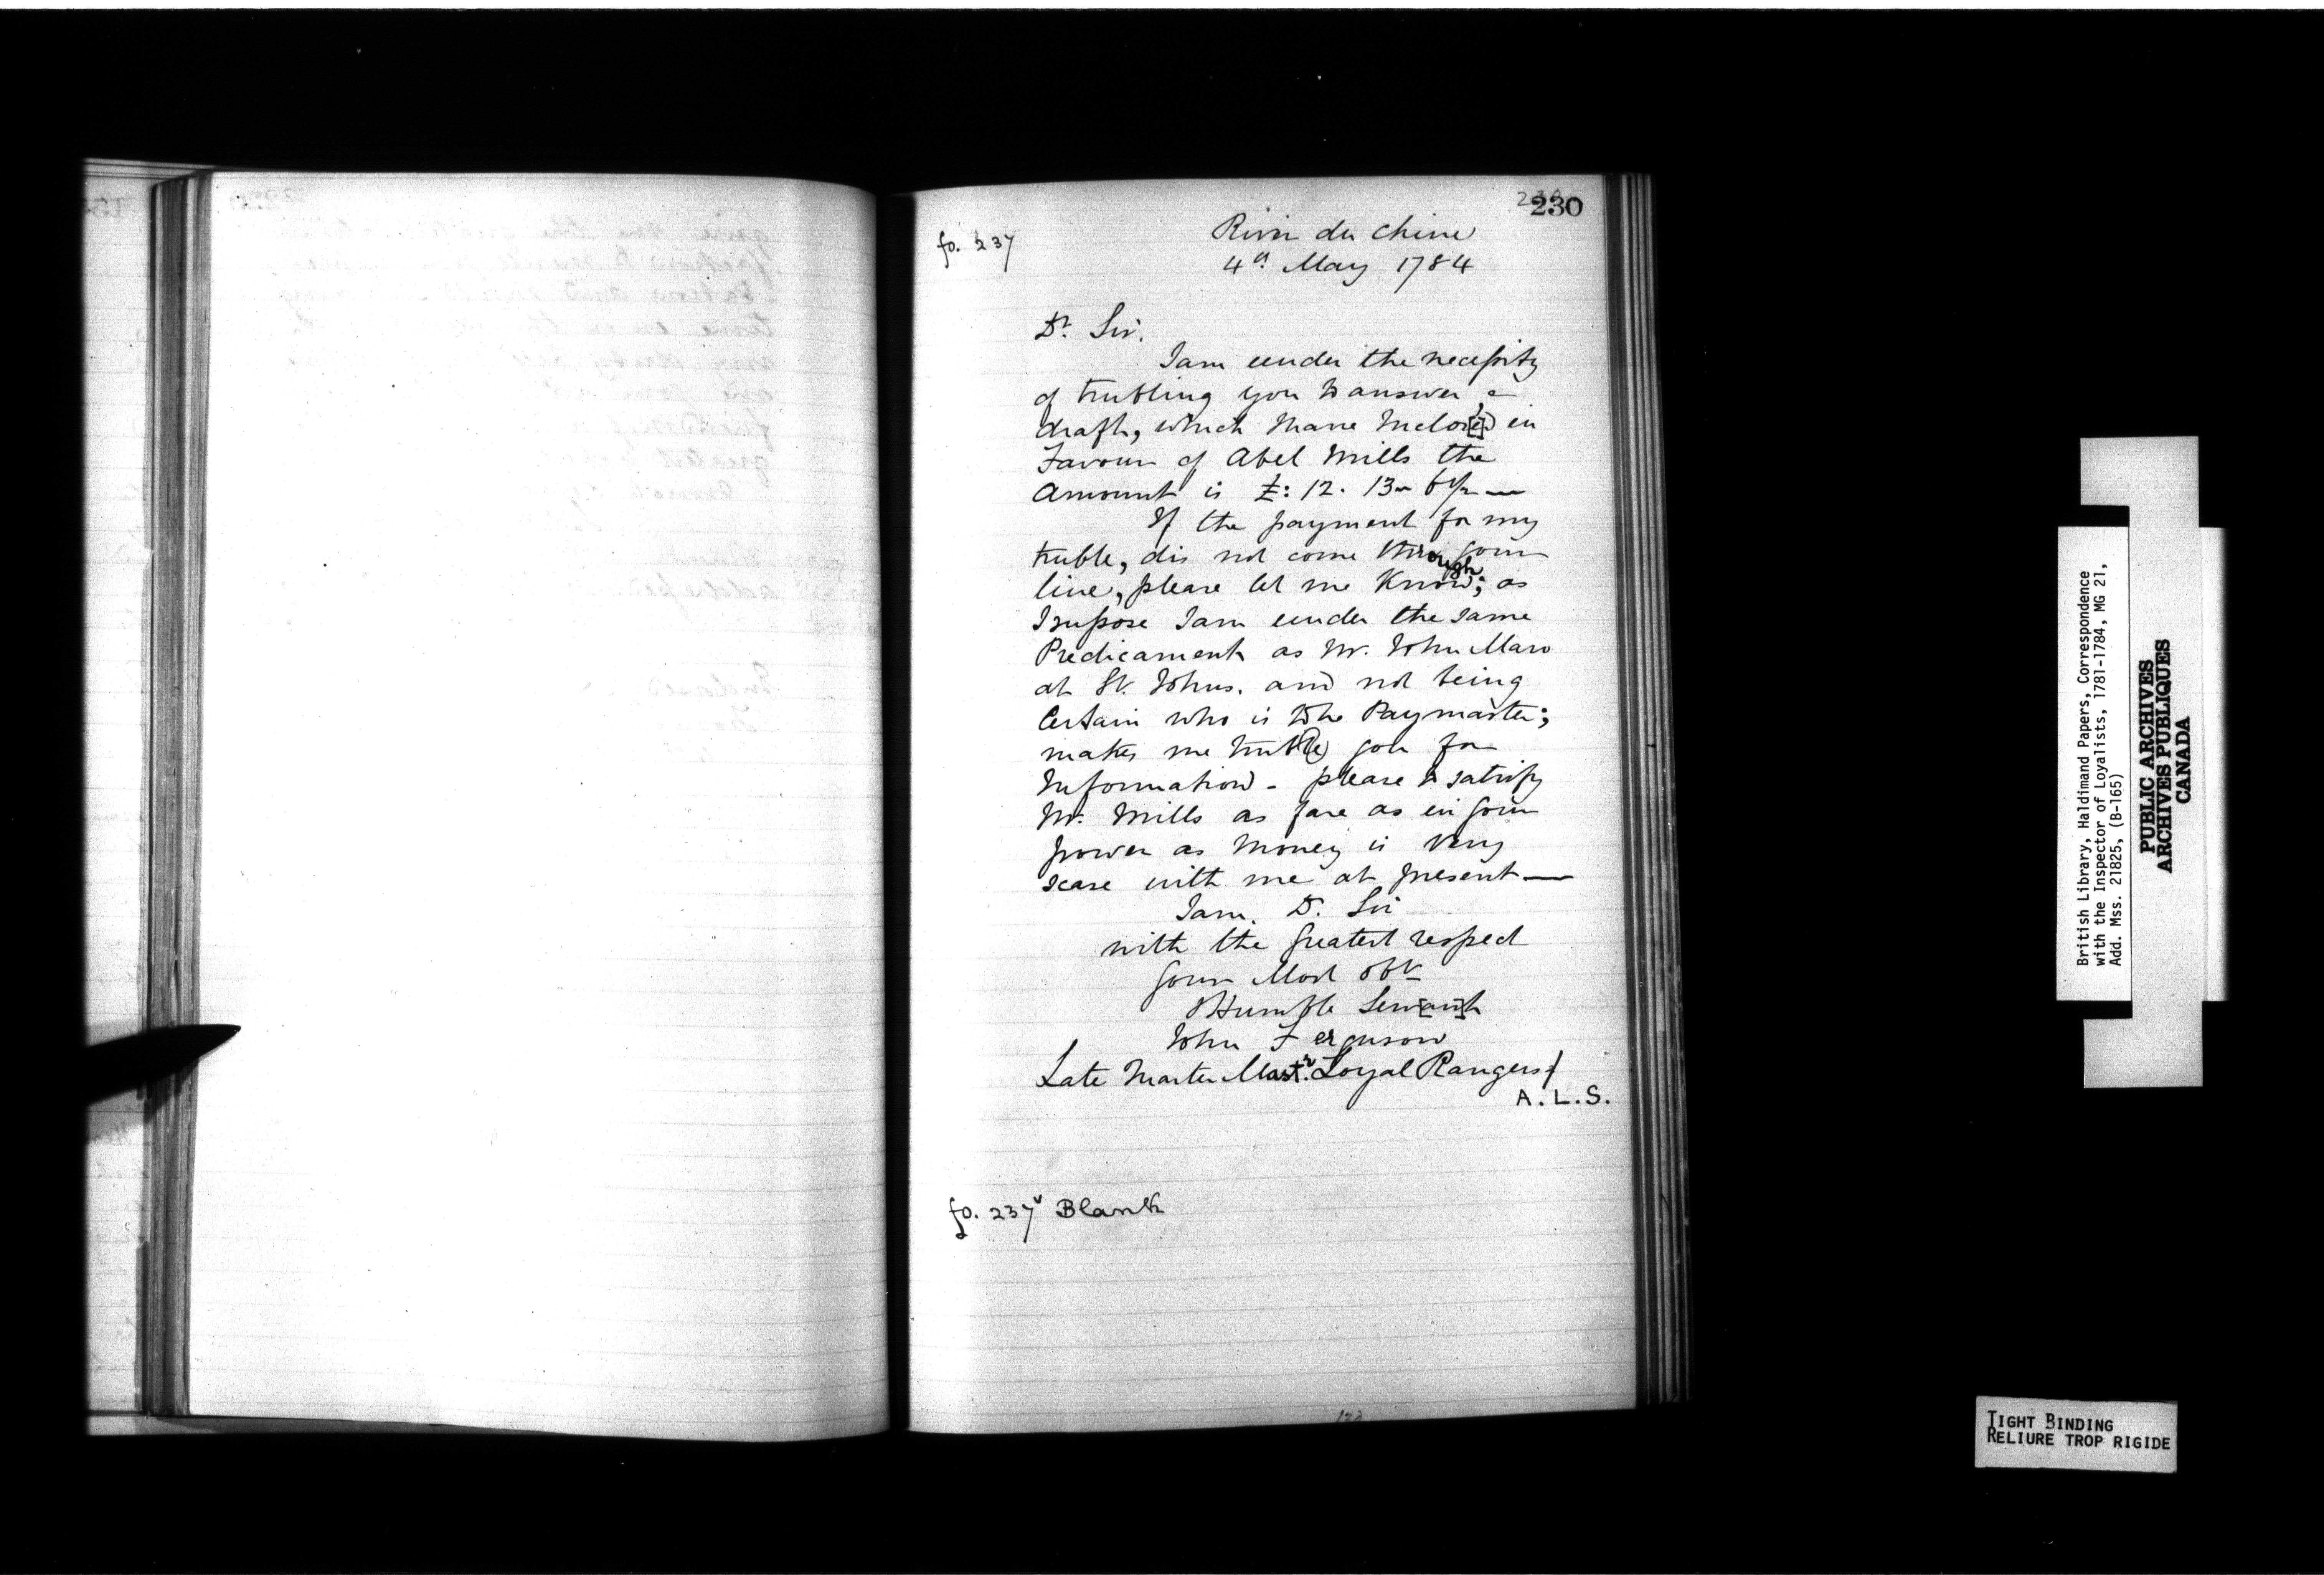 230
230
fo. 237
River du Chine
4th May 1784
Dr. Sir.
I am under the necessity
of trubling you to answer a
draft, which I have Inclos[e]d in
Favour of Abel Mills the
Amount is £: 12. 13- 6½ —
If the payment for my
truble, dis not come through your
line, please let me Know; as
I supose I am under the same
Predicament as Mr. John Maw
at St. Johns. and not being
Certain who is the Paymaster;
makes me truble you for
Information - please to satisfy
Mr. Mills as fare as in your
power as Money is Very
scase with me at present —
I am. D. Sir
with the Greatest respect
your Most obt
Humble Serv[an]t
John Ferguson
Late Barter Mastr. Loyal Rangers
A.L.S.
fo. 237v Blank
British Library, Haldimand Papers, Correspondence
with the Inspector of Loyalists, 1781-1784, MG 21,
Add. Mss. 21825, (B-165)
PUBLIC ARCHIVES
ARCHIVES PUBLIQUES
CANADA
TIGHT BINDING
RELIURE TROP RIGIDE